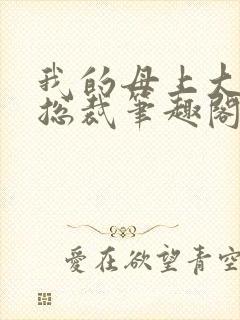 我的母上大
总裁笔趣阁
爱在欲望青空